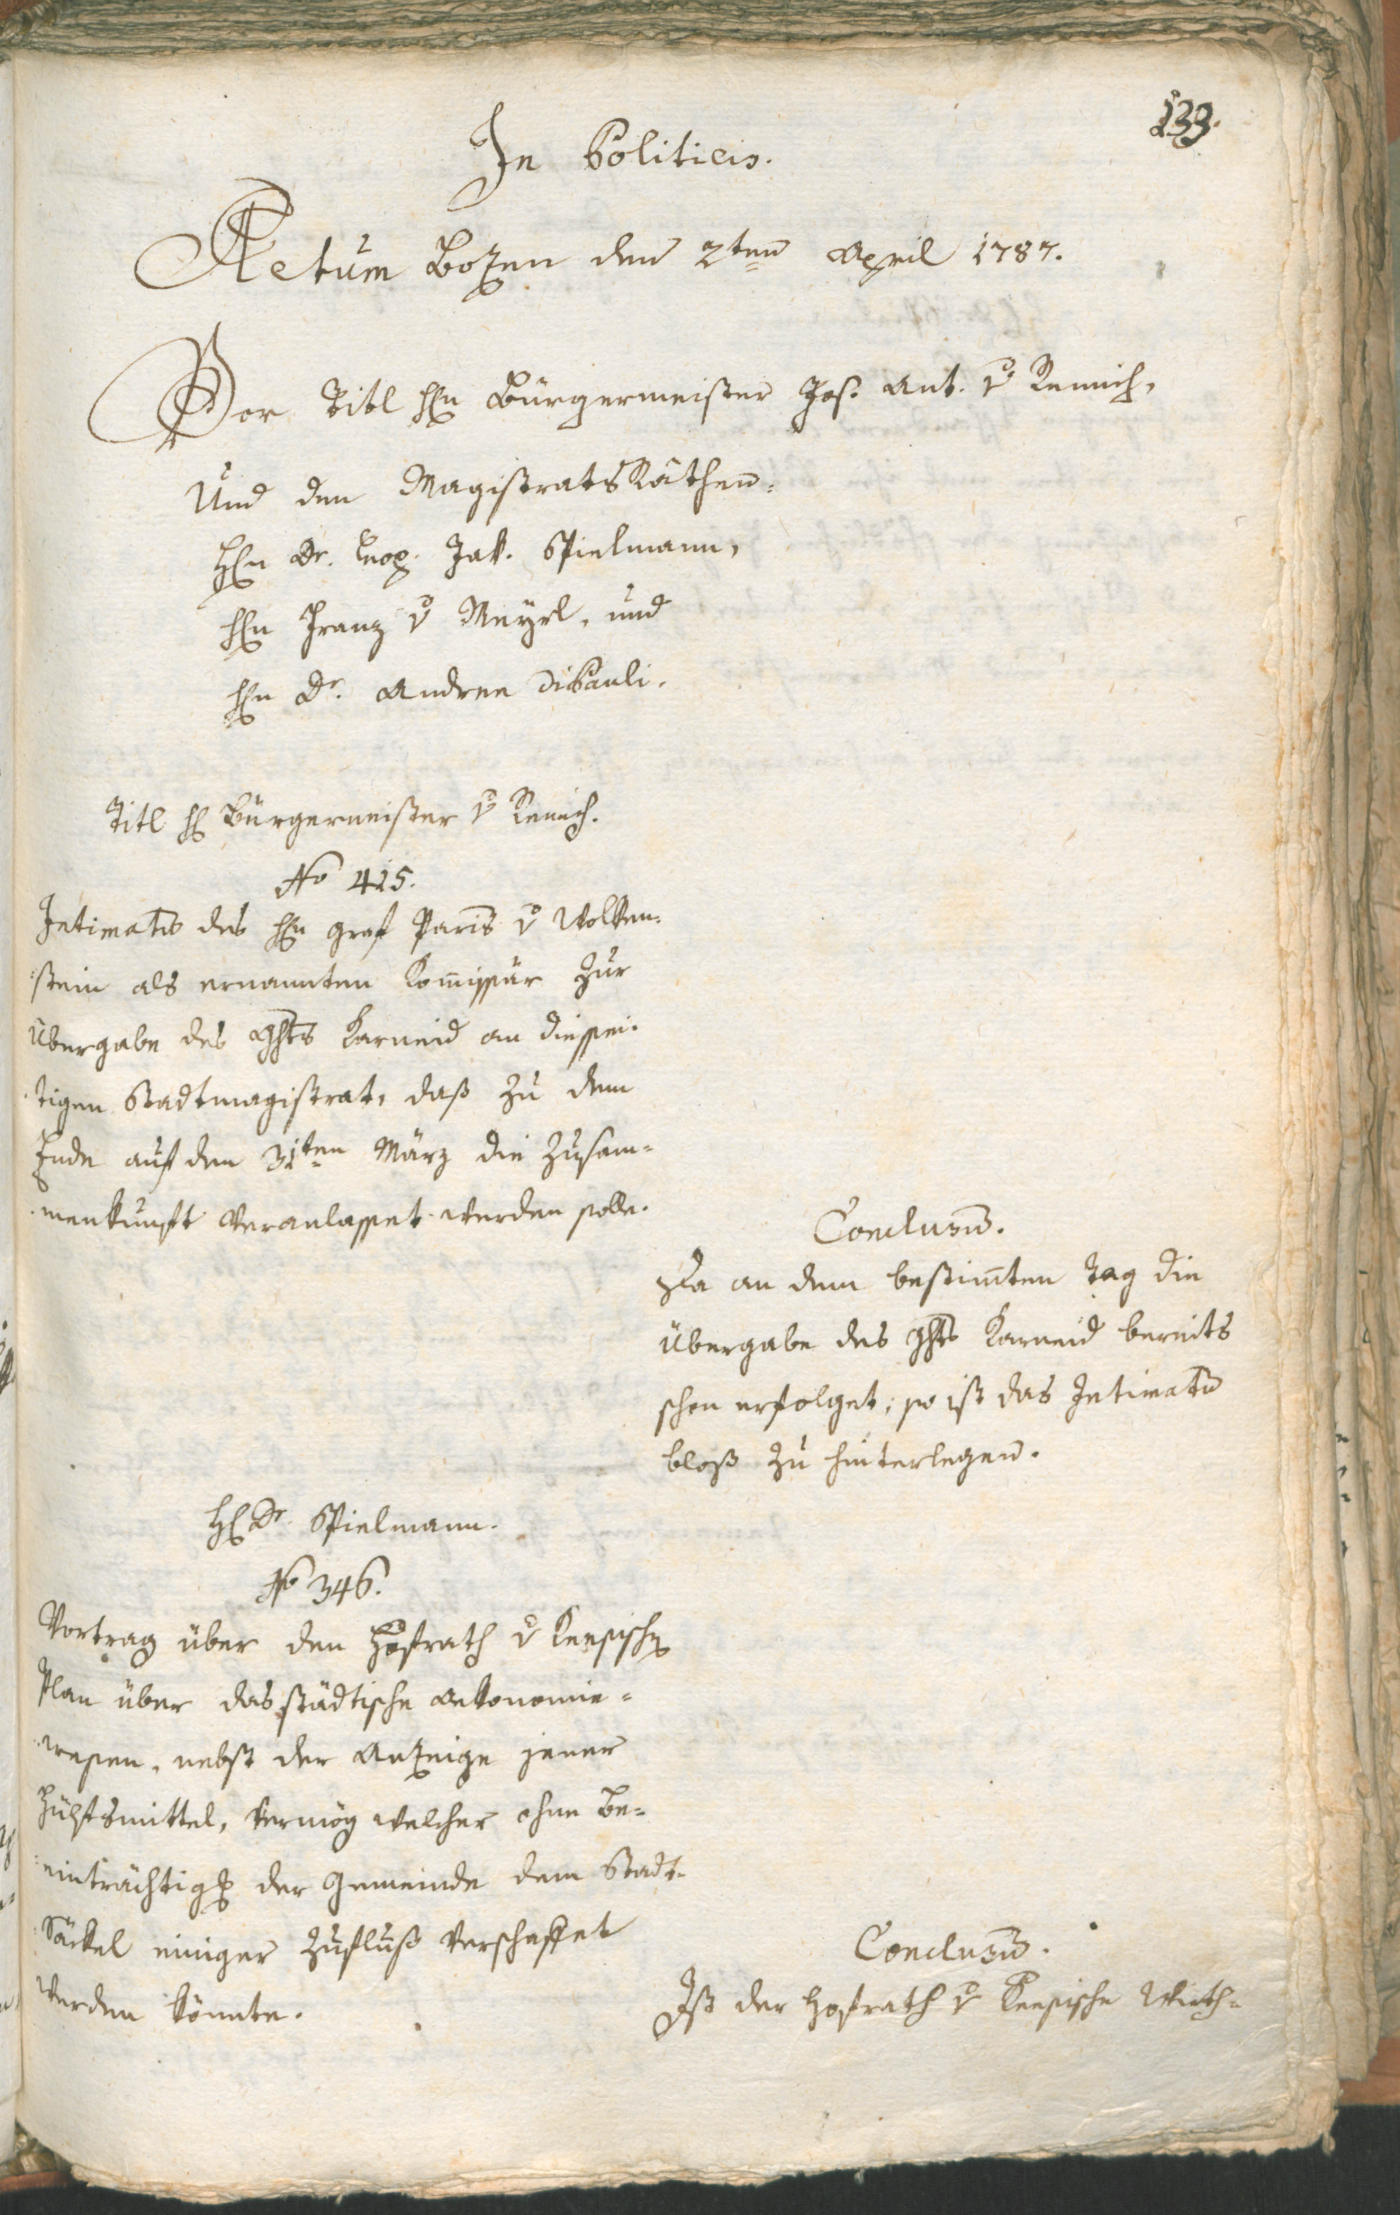 133.
In Politicis.
Actum Bozen den 2ten April 1787.
Vor Titl Hn Bürgermeister Jos. Ant. v Remich,
Und den Magistrats Räthen
Hn Dr. Leop. Jak. Spielmann,
Hn Franz v Meyrl, und
Hn Dr. Andree DiPauli.
Titl H Bürgermeister v Remich.
No 415.
Intimatũ des Hn Graf Paris v Wolken-
stein als ernannten Kom̃issär zur
Übergabe des Ghts Karneid an diessei-
tigen Stadtmagistrat, daß zu dem
Ende auf den 31ten März die Zusam-
menkunft veranlasset werden solle.
Conclusũ.
Da an dem bestim̃ten Tag die
Übergabe des Ghts Karneid bereits
schon erfolget; so ist das Intimatũ
bloß zu hinterlegen.
H Dr. Spielmann.
No 346.
Vortrag über den Hofrath v
Plan über das städtische Oekonomie-
wesen, nebst der Anzeige jener
Hülfsmittel, vermög welcher ohne Be-
einträchtigg der Gemeinde dem Stadt-
Säckel einiger Zufluß verschaffet
werden könnte.
Conclusũ.
Ist der Hofrath v Wirth-